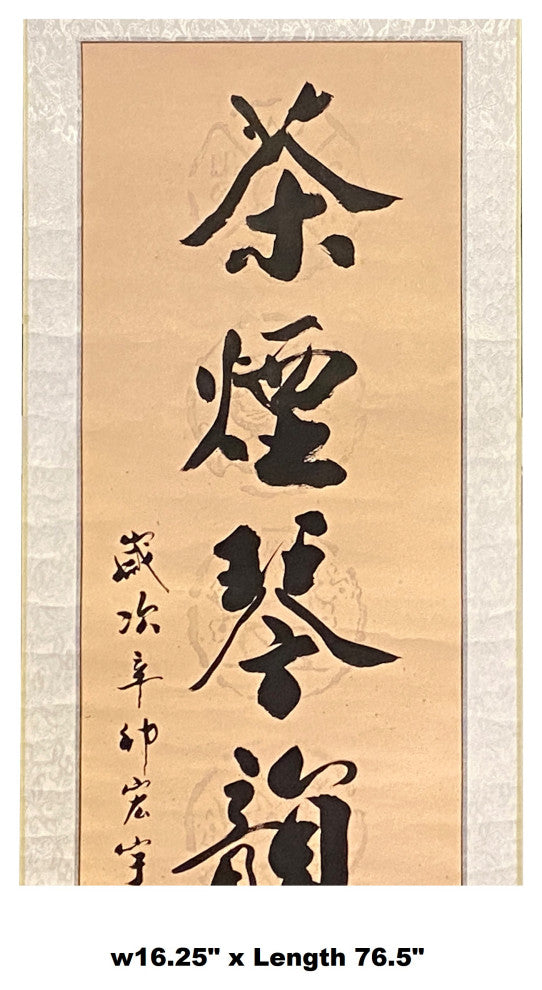 茶煙琴韻
歲次辛卯宏宇
w16.25" x Length 76.5"